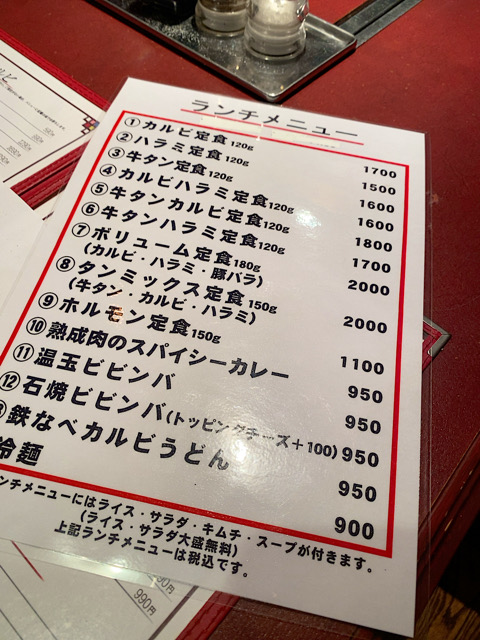 ランチメニュー
①カルビ定食120g 1700
②ハラミ定食120g 1500
③牛タン定食120g 1600
④カルビハラミ定食120g 1600
⑤牛タンカルビ定食120g 1800
⑥牛タンハラミ定食120g 1700
⑦ボリューム定食180g 2000
(カルビ・ハラミ・豚バラ)
⑧タンミックス定食150g 2000
(牛タン・カルビ・ハラミ)
⑨ホルモン定食150g 1100
⑩熟成肉のスパイシーカレー 950
⑪温玉ビビンバ 950
⑫石焼ビビンバ(トッピングチーズ+100) 950
鉄なべカルビうどん 950
冷麺 900
ンチメニューにはライス・サラダ・キムチ・スープが付きます。
(ライス・サラダ大盛無料)
上記ランチメニューは税込です。
990円